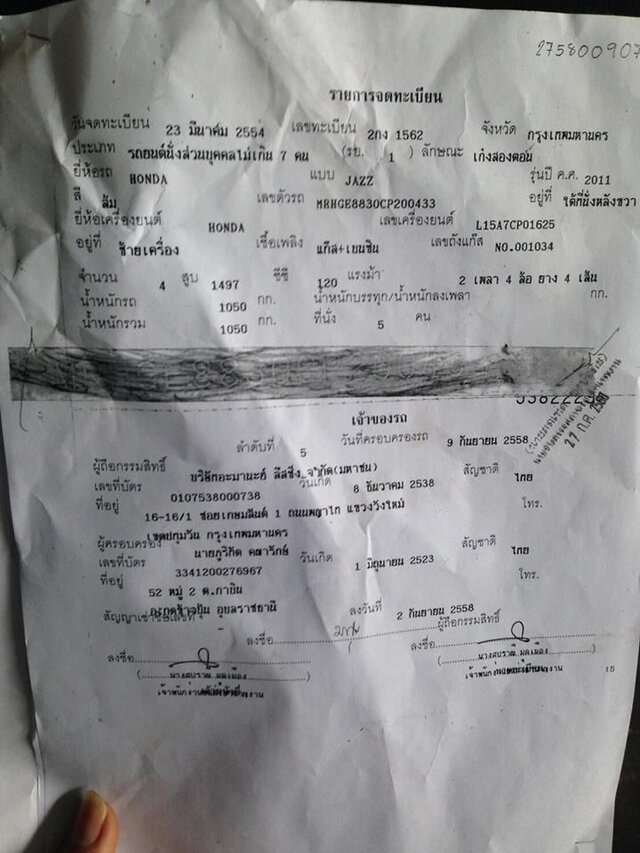 275800907
รายการจดทะเบียน
วันจดทะเบียน 23 มีนาคม 2554 เลขทะเบียน 2กง 1562 จังหวัด กรุงเทพมหานคร
ประเภท รถยนต์นั่งส่วนบุคคลไม่เกิน 7 คน (รย. 1 ) ลักษณะ เก๋งสองตอน
ยี่ห้อรถ HONDA แบบ JAZZ รุ่นปี ค.ศ. 2011
สี ส้ม เลขตัวรถ MRHGE8830CP200433 อยู่ที่ ใต้ที่นั่งหลังขวา
ยี่ห้อเครื่องยนต์ HONDA เลขเครื่องยนต์ L15A7CP01625
อยู่ที่ ซ้ายเครื่อง เชื้อเพลิง แก๊ส+เบนซิน เลขถังแก๊ส NO.001034
จำนวน 4 สูบ 1497 ซีซี 120 แรงม้า 2 เพลา 4 ล้อ ยาง 4 เส้น
น้ำหนักรถ 1050 กก. น้ำหนักบรรทุก/น้ำหนักลงเพลา กก.
น้ำหนักรวม 1050 กก. ที่นั่ง 5 คน
27 ก.ค.
เจ้าของรถ
ลำดับที่ 5 วันที่ครอบครองรถ 9 กันยายน 2558
ผู้ถือกรรมสิทธิ์ บริษัทอะมานะฮ์ ลิสซิ่ง จำกัด(มหาชน) สัญชาติ ไทย
เลขที่บัตร 0107538000738 วันเกิด 8 ธันวาคม 2538
ที่อยู่ 16-16/1 ซอยเกษมสันต์ 1 ถนนพญาไท แขวงวังใหม่ โทร.
เขตปทุมวัน กรุงเทพมหานคร
ผู้ครอบครอง นายภูวิกิต สัญชาติ ไทย
เลขที่บัตร 3341200276967 วันเกิด 1 มิถุนายน 2523
ที่อยู่ 52 หมู่ 2 ต.กาบิน โทร.
อ.กุดข้าวปุ้น อุบลราชธานี
สัญญาเช่าซื้อเลขที่ - ลงวันที่ 2 กันยายน 2558
ลงชื่อ ผู้ถือกรรมสิทธิ์
ลงชื่อ ลงชื่อ
15